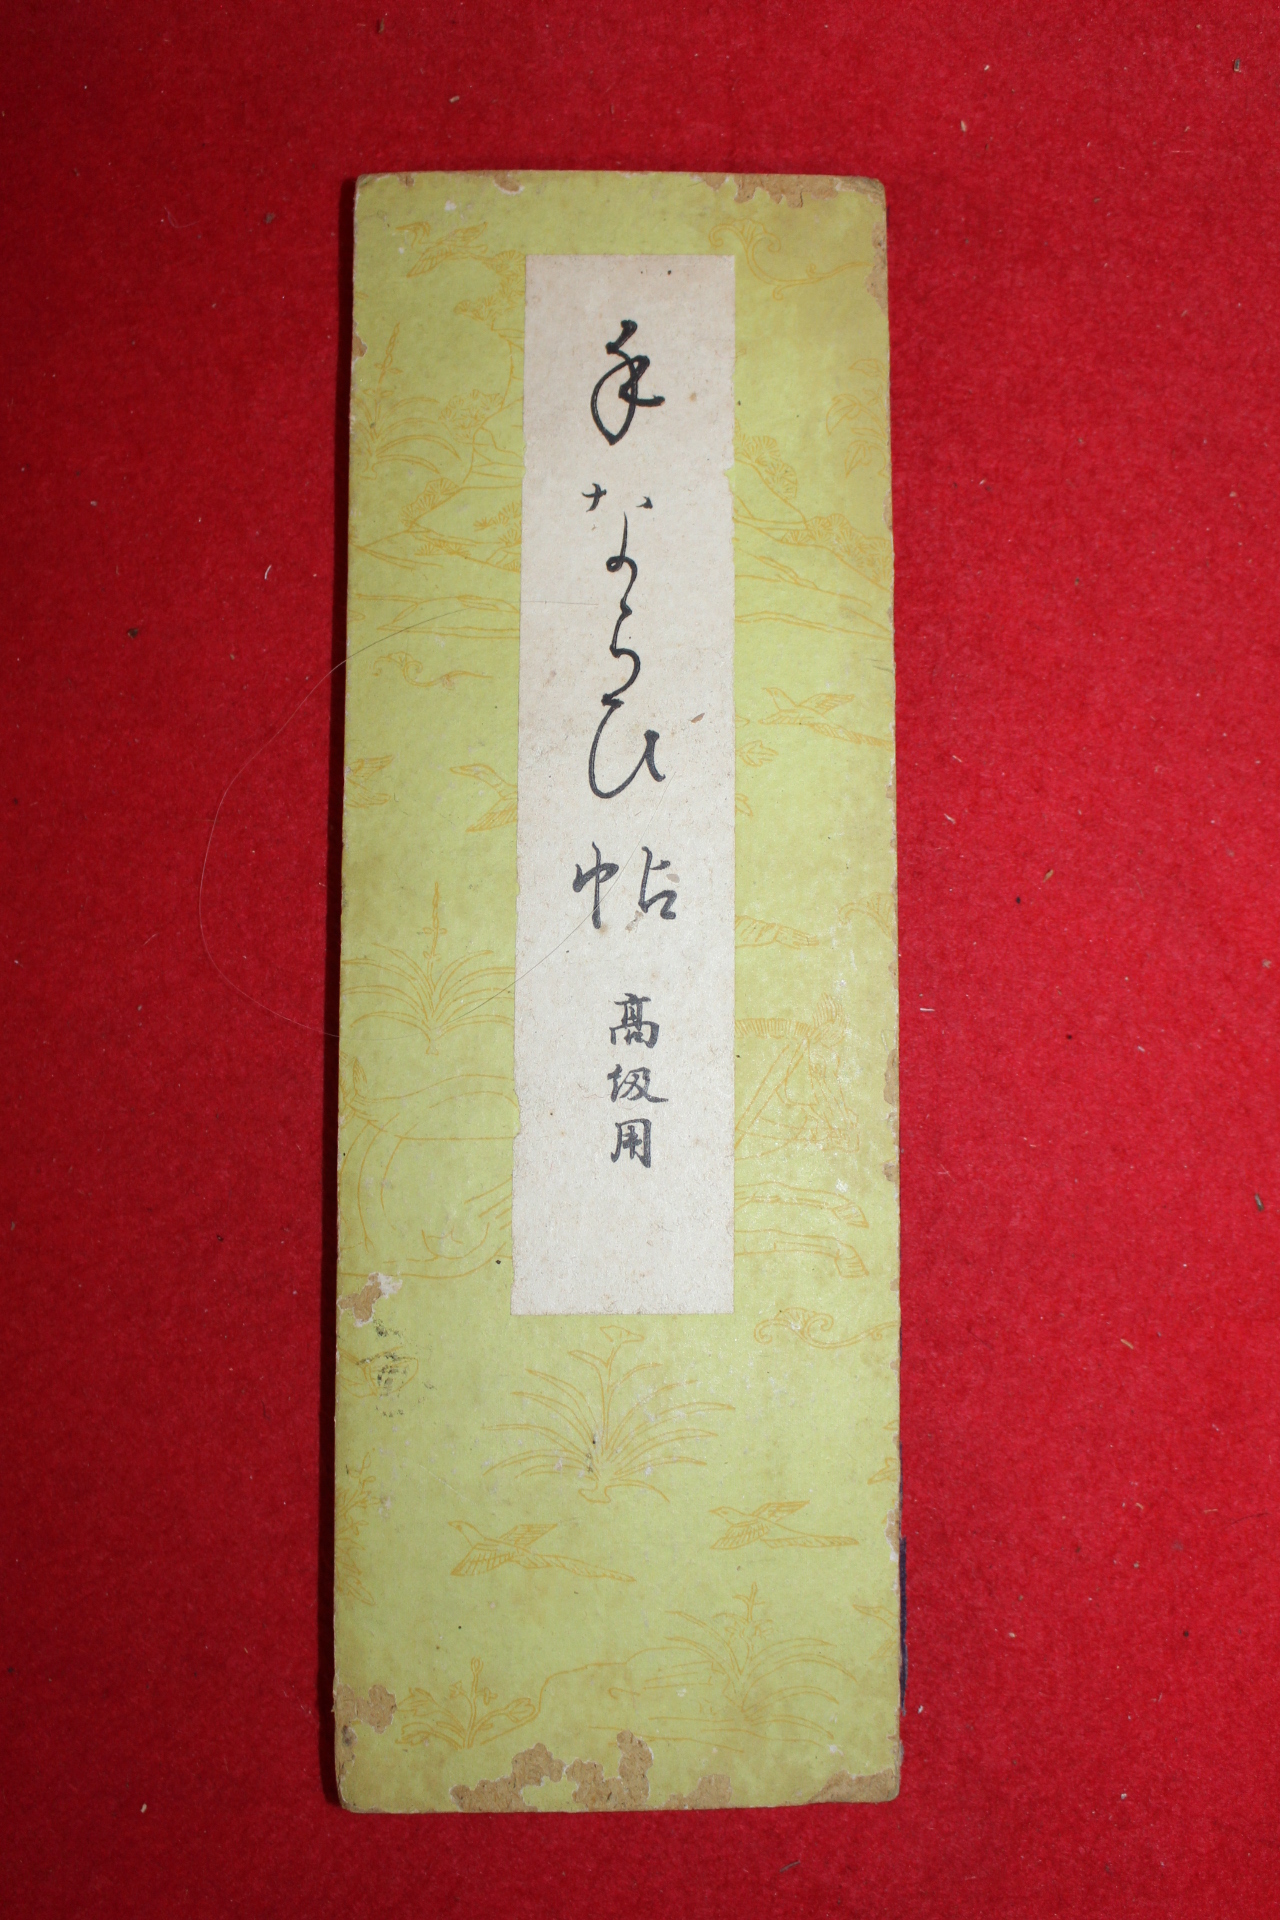 手ならひ帖
高級用